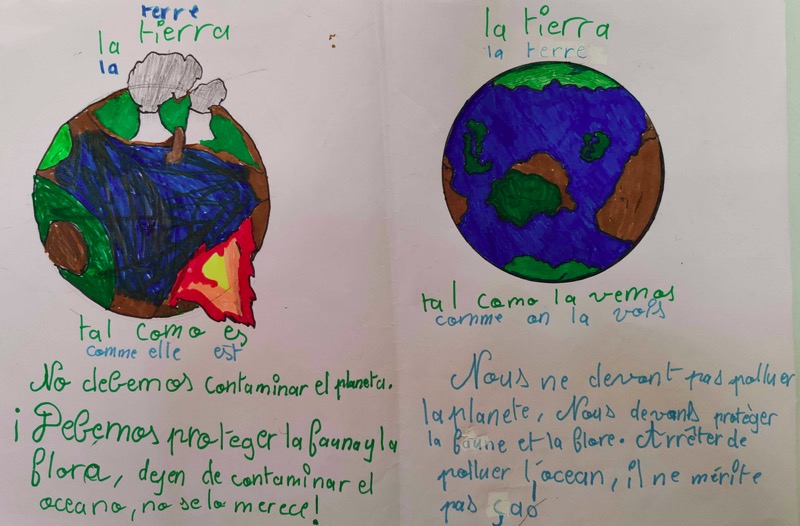 terre
la tierra
la
tal como es
comme elle est
No debemos contaminar el planeta.
¡Debemos proteger la fauna y la
flora, dejen de contaminar el
oceano, no se lo merece!
la tierra
la terre
tal como la vemos
comme on la vois
Nous ne devont pas polluer
la planete, Nous devants protèger
la faune et la flore. Arrêter de
polluer l'ocean, il ne mérite
pas çaó